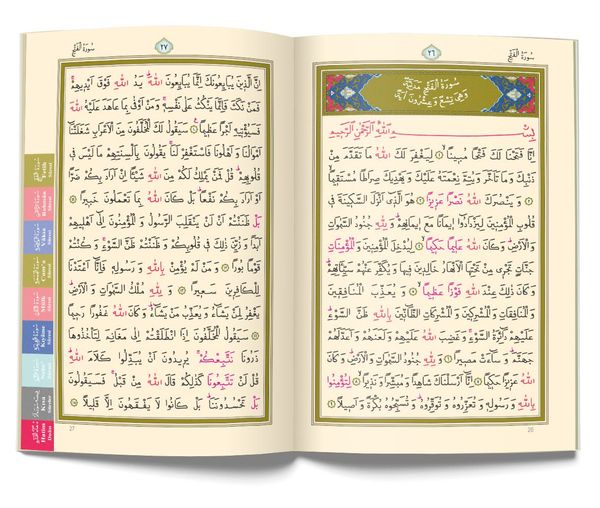 سُورَةُ الْفَتْحِ
٢٦
سُورَةُ الْفَتْحِ مَدَنِيَّةٌ
وَهِيَ تِسْعٌ وَعِشْرُونَ اٰيَةً
بِسْمِ اللّٰهِ الرَّحْمٰنِ الرَّحِيمِ
اِنَّا فَتَحْنَا لَكَ فَتْحًا مُبِينًاۙ ﴿١﴾ لِيَغْفِرَ لَكَ اللّٰهُ مَا تَقَدَّمَ مِنْ
ذَنْبِكَ وَمَا تَاَخَّرَ وَيُتِمَّ نِعْمَتَهُ عَلَيْكَ وَيَهْدِيَكَ صِرَاطًا مُسْتَقِيمًاۙ
﴿٢﴾ وَيَنْصُرَكَ اللّٰهُ نَصْرًا عَزِيزًا ﴿٣﴾ هُوَ الَّذِي اَنْزَلَ السَّكِينَةَ فِي
قُلُوبِ الْمُؤْمِنِينَ لِيَزْدَادُوا اِيمَانًا مَعَ اِيمَانِهِمْۜ وَلِلّٰهِ جُنُودُ السَّمٰوَاتِ
وَالْاَرْضِۜ وَكَانَ اللّٰهُ عَلِيمًا حَكِيمًاۙ ﴿٤﴾ لِيُدْخِلَ الْمُؤْمِنِينَ وَالْمُؤْمِنَاتِ
جَنَّاتٍ تَجْرِي مِنْ تَحْتِهَا الْاَنْهَارُ خَالِدِينَ فِيهَا وَيُكَفِّرَ عَنْهُمْ سَيِّـَٔاتِهِمْۜ
وَكَانَ ذٰلِكَ عِنْدَ اللّٰهِ فَوْزًا عَظِيمًاۙ ﴿٥﴾ وَيُعَذِّبَ الْمُنَافِقِينَ
وَالْمُنَافِقَاتِ وَالْمُشْرِكِينَ وَالْمُشْرِكَاتِ الظَّٓانِّينَ بِاللّٰهِ ظَنَّ السَّوْءِۜ
عَلَيْهِمْ دَٓائِرَةُ السَّوْءِۚ وَغَضِبَ اللّٰهُ عَلَيْهِمْ وَلَعَنَهُمْ وَاَعَدَّ لَهُمْ
جَهَنَّمَۜ وَسَٓاءَتْ مَصِيرًا ﴿٦﴾ وَلِلّٰهِ جُنُودُ السَّمٰوَاتِ وَالْاَرْضِۜ وَكَانَ
اللّٰهُ عَزِيزًا حَكِيمًا ﴿٧﴾ اِنَّٓا اَرْسَلْنَاكَ شَاهِدًا وَمُبَشِّرًا وَنَذِيرًاۙ ﴿٨﴾ لِتُؤْمِنُوا
بِاللّٰهِ وَرَسُولِهِ وَتُعَزِّرُوهُ وَتُوَقِّرُوهُۜ وَتُسَبِّحُوهُ بُكْرَةً وَاَصِيلًا ﴿٩﴾
26
٢٧
سُورَةُ الْفَتْحِ
اِنَّ الَّذِينَ يُبَايِعُونَكَ اِنَّمَا يُبَايِعُونَ اللّٰهَۜ يَدُ اللّٰهِ فَوْقَ اَيْدِيهِمْۚ
فَمَنْ نَكَثَ فَاِنَّمَا يَنْكُثُ عَلٰى نَفْسِهِۚ وَمَنْ اَوْفٰى بِمَا عَاهَدَ عَلَيْهُ اللّٰهَ
فَسَيُؤْتِيهِ اَجْرًا عَظِيمًا ﴿١٠﴾ سَيَقُولُ لَكَ الْمُخَلَّفُونَ مِنَ الْاَعْرَابِ شَغَلَتْنَٓا
اَمْوَالُنَا وَاَهْلُونَا فَاسْتَغْفِرْ لَنَاۚ يَقُولُونَ بِاَلْسِنَتِهِمْ مَا لَيْسَ فِي
قُلُوبِهِمْۜ قُلْ فَمَنْ يَمْلِكُ لَكُمْ مِنَ اللّٰهِ شَيْـًٔا اِنْ اَرَادَ بِكُمْ ضَرًّا
اَوْ اَرَادَ بِكُمْ نَفْعًاۜ بَلْ كَانَ اللّٰهُ بِمَا تَعْمَلُونَ خَبِيرًا ﴿١١﴾
بَلْ ظَنَنْتُمْ اَنْ لَنْ يَنْقَلِبَ الرَّسُولُ وَالْمُؤْمِنُونَ اِلٰٓى اَهْلِيهِمْ
اَبَدًا وَزُيِّنَ ذٰلِكَ فِي قُلُوبِكُمْ وَظَنَنْتُمْ ظَنَّ السَّوْءِۚ وَكُنْتُمْ
قَوْمًا بُورًا ﴿١٢﴾ وَمَنْ لَمْ يُؤْمِنْ بِاللّٰهِ وَرَسُولِهِ فَاِنَّٓا اَعْتَدْنَا
لِلْكَافِرِينَ سَعِيرًا ﴿١٣﴾ وَلِلّٰهِ مُلْكُ السَّمٰوَاتِ وَالْاَرْضِۜ
يَغْفِرُ لِمَنْ يَشَٓاءُ وَيُعَذِّبُ مَنْ يَشَٓاءُۜ وَكَانَ اللّٰهُ غَفُورًا رَحِيمًا
﴿١٤﴾ سَيَقُولُ الْمُخَلَّفُونَ اِذَا انْطَلَقْتُمْ اِلٰى مَغَانِمَ لِتَأْخُذُوهَا
ذَرُونَا نَتَّبِعْكُمْۚ يُرِيدُونَ اَنْ يُبَدِّلُوا كَلَامَ اللّٰهِۜ
قُلْ لَنْ تَتَّبِعُونَا كَذٰلِكُمْ قَالَ اللّٰهُ مِنْ قَبْلُۚ فَسَيَقُولُونَ
بَلْ تَحْسُدُونَنَاۜ بَلْ كَانُوا لَا يَفْقَهُونَ اِلَّا قَلِيلًا ﴿١٥﴾
27
Fetih Sûresi
Rahmân Sûresi
Vâkıa Sûresi
Cum'a Sûresi
Mülk Sûresi
Kıyâme Sûresi
Nebe' Sûresi
Kısa Sûreler
Hatim Duâsı